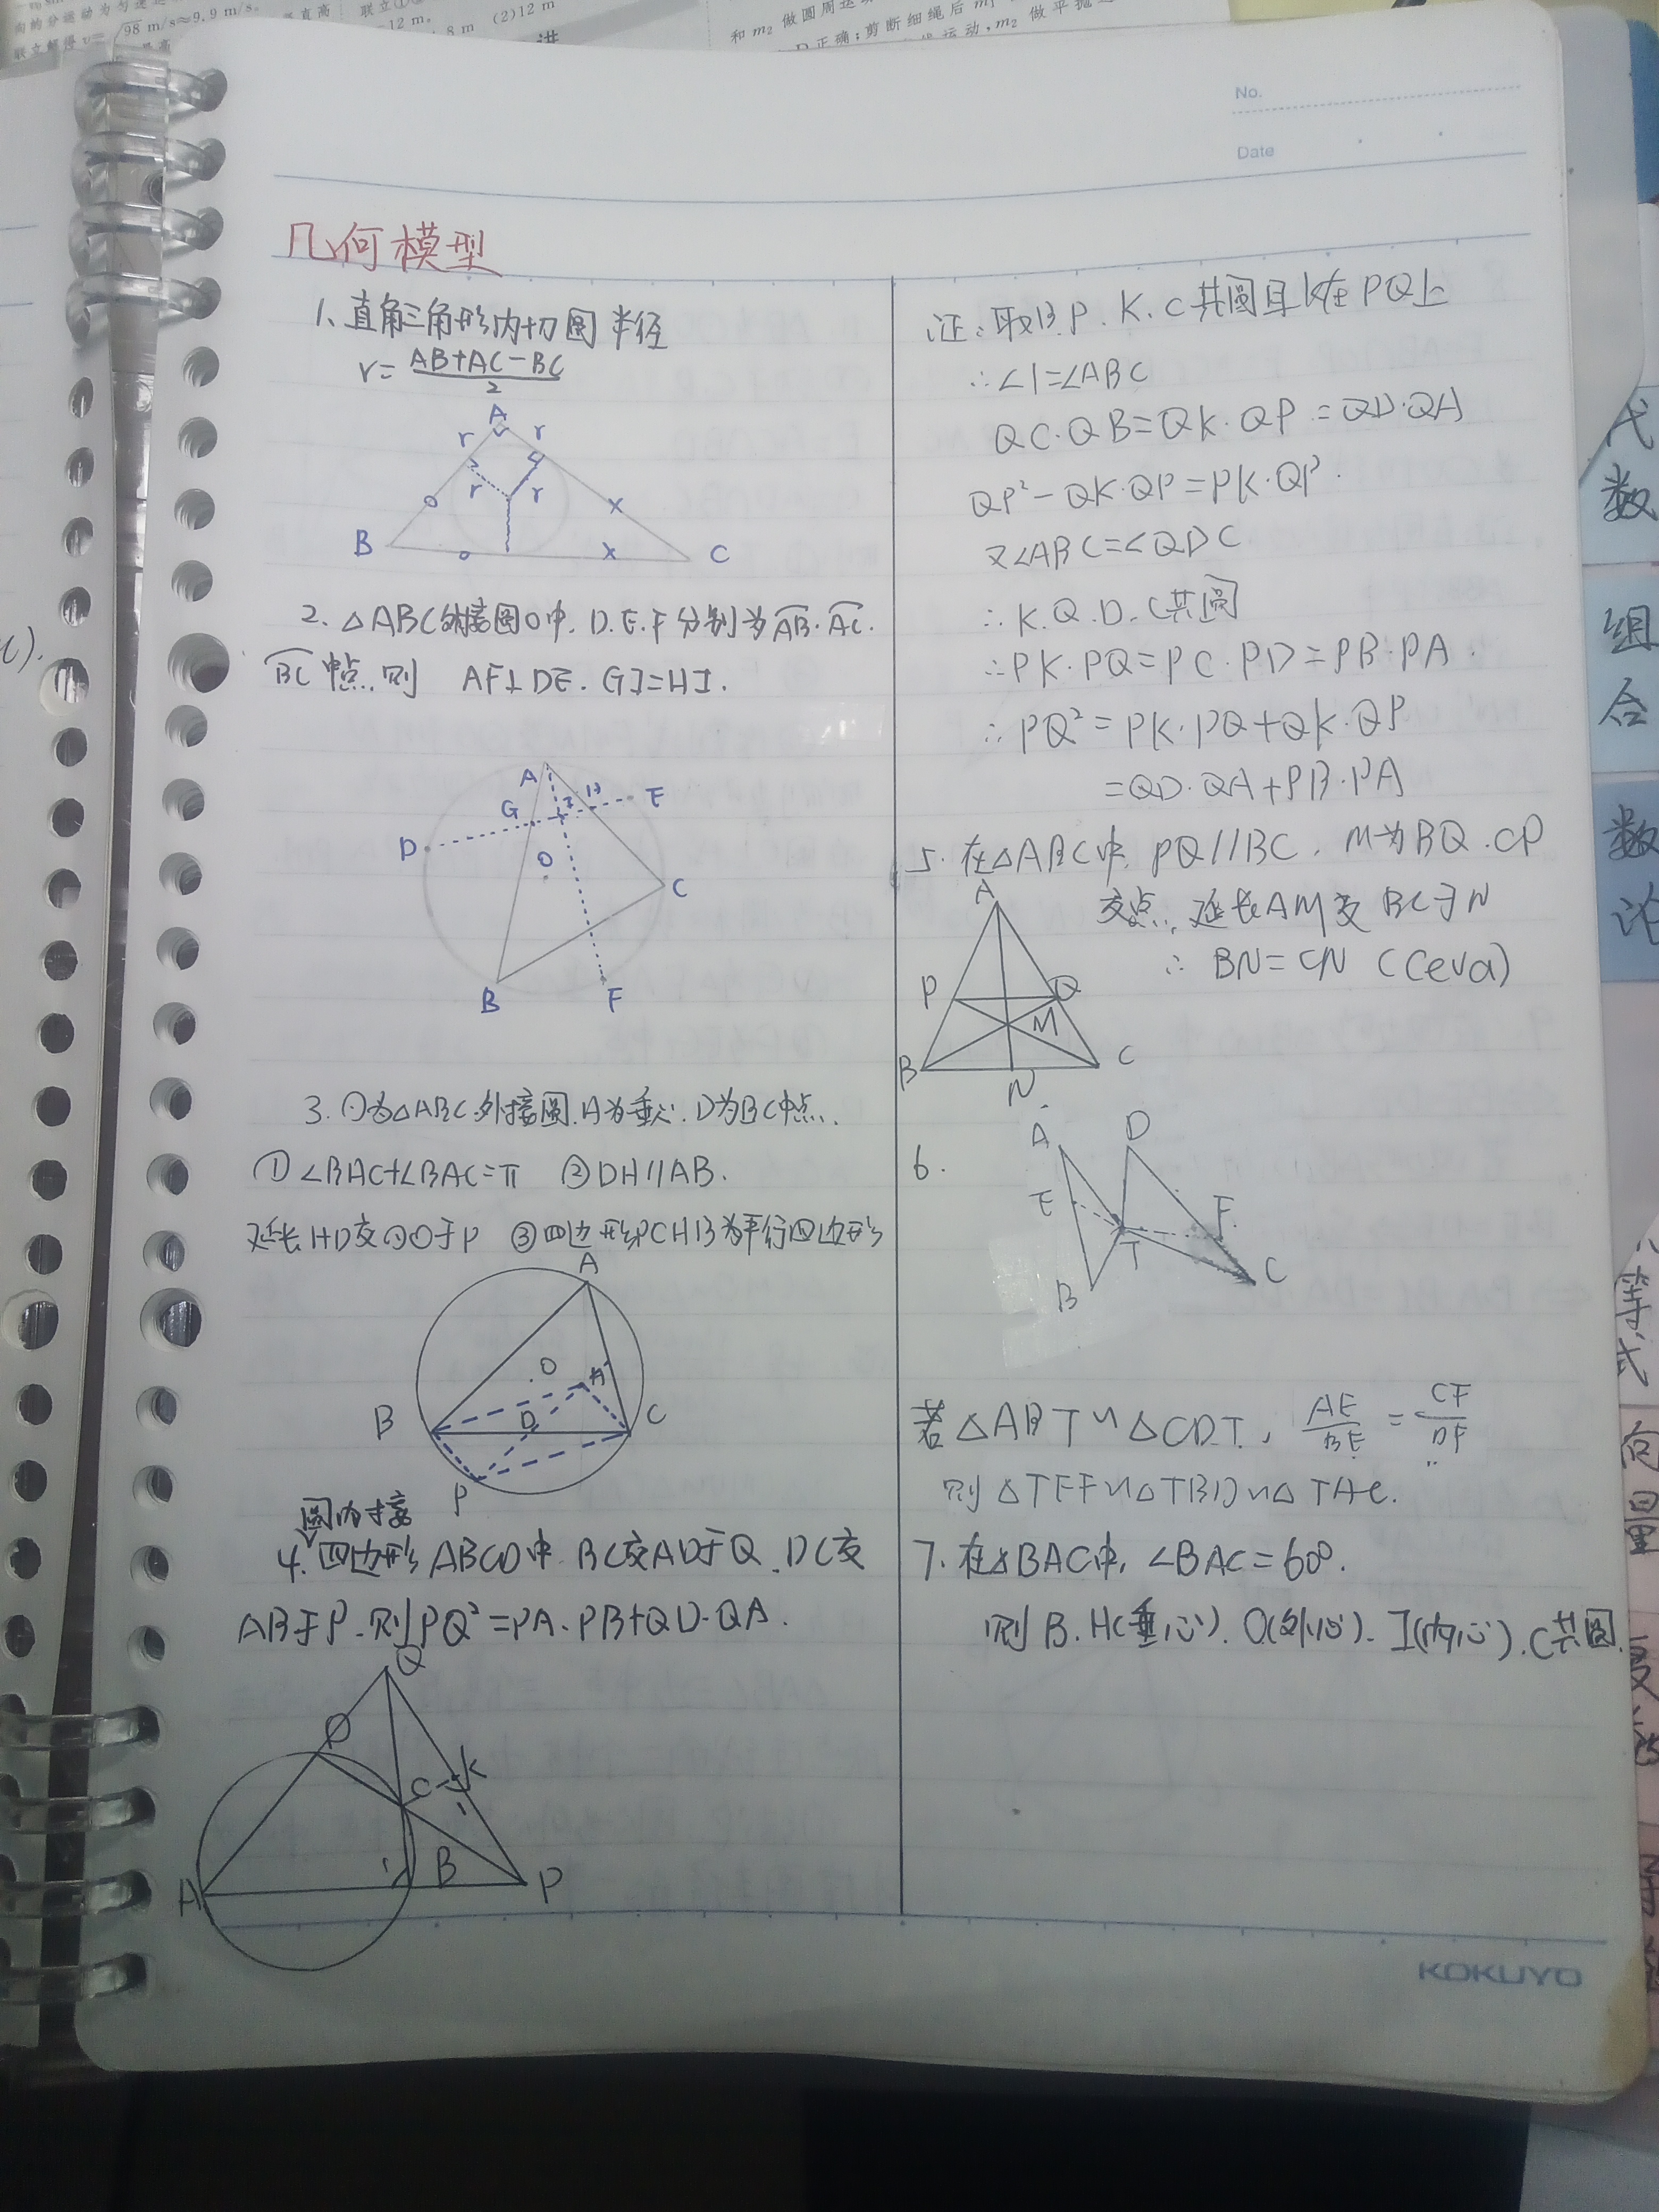 98 m/s≈9.9 m/s.
(2)12 m
和 m₂ 做圆周运
正确;剪断细绳后 m
运动,m₂ 做平抛
No.
Date
几何模型
1、直角三角形内切圆半径
r=(AB+AC-BC)/2
A
r r
r r
B C
2. △ABC外接圆O中. D.E.F分别为AB.AC.
BC中点.则 AF⊥DE. GI=HI.
A H E
G I
D
O
C
B F
3. O为△ABC外接圆.H为垂心.D为BC中点.
①∠BAC+∠BAC=π ②DH∥AB.
延长HD交⊙O于P ③四边形PCHB为平行四边形
A
O
H
B D C
P
圆内接
4.四边形ABCD中.BC交AD于Q.DC交
AB于P.则PQ²=PA·PB+QD·QA.
Q
D
C K
1
A B P
证:取B.P.K.C共圆且K在PQ上
∴∠1=∠ABC
QC·QB=QK·QP=QD·QA
QP²-QK·QP=PK·QP.
又∠ABC=∠QDC
∴K.Q.D.C共圆
∴PK·PQ=PC·PD=PB·PA.
∴PQ²=PK·PQ+QK·QP
=QD·QA+PB·PA
5.在△ABC中.PQ//BC.M为BQ.CP
交点.延长AM交BC于N
∴BN=CN (Ceva)
A
P Q
M
B N C
6.
A D
E F
T
B C
若△ABT∽△CDT,AE/BE=CF/DF
则△TEF∽△TBD∽△TAC.
7.在△BAC中,∠BAC=60°.
则B.H(垂心).O(外心).I(内心).C共圆.
KOKUYO
代数
组合
数论
等式
向量